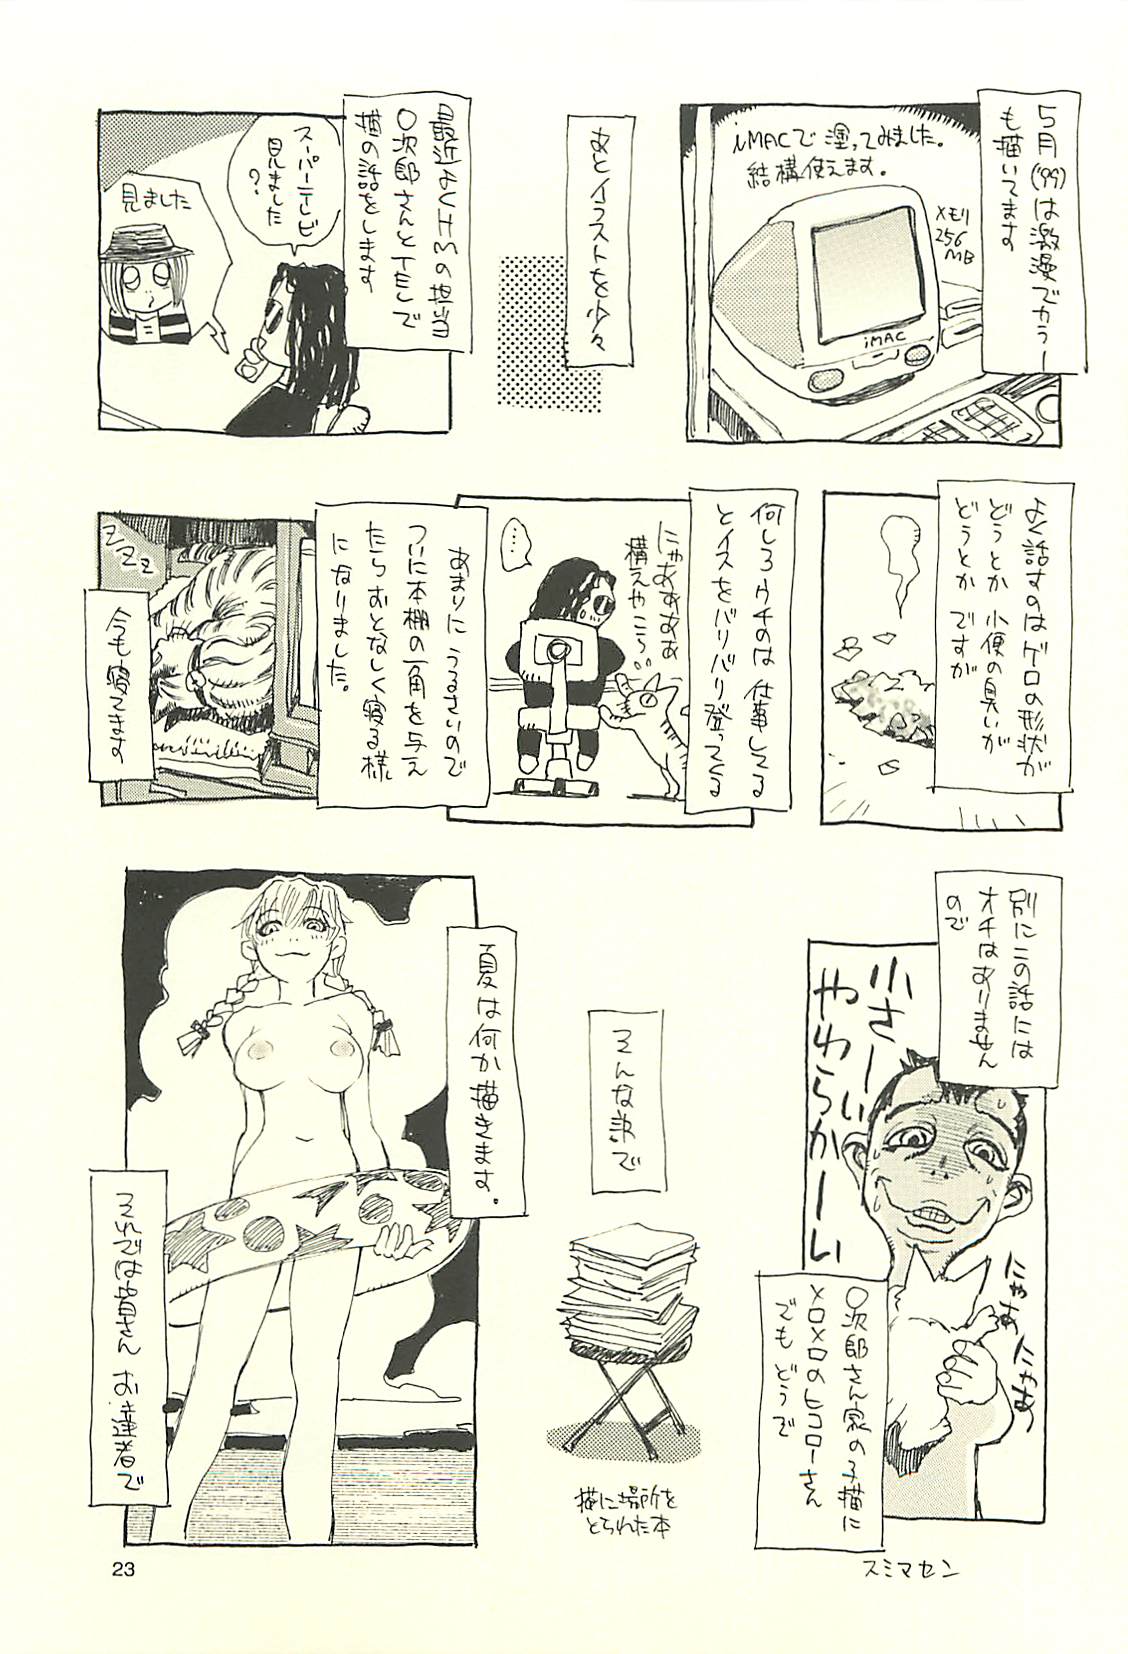 5月('99)は激漫でカラー
も描いてます
iMACで塗ってみました。
結構使えます。
メモリ
256
MB
iMAC
あとイラストを少々
最近よくHMの担当
〇次郎さんとTELで
猫の話をします
スーパーテレビ
見ました
?
見ました
よく話すのはゲロの形状が
どうとか 小便の臭いが
どうとか ですが
何しろウチのは 仕事してる
とイスをバリバリ登ってくる
にゃあああぁ
構えやこら
…
あまりに うるさいので
ついに本棚の一角を与え
たらおとなしく寝る様
になりました。
ZZZ
今も寝てます
別にこの話には
オチはありません
ので
小さーい
やわらかーい
にゃあ にゃあ
〇次郎さん家の子猫に
メロメロのヒコローさん
でもどうで
スミマセン
そんな訳で
猫に場所を
とられた本
夏は何か描きます。
それでは皆さん お達者で
23